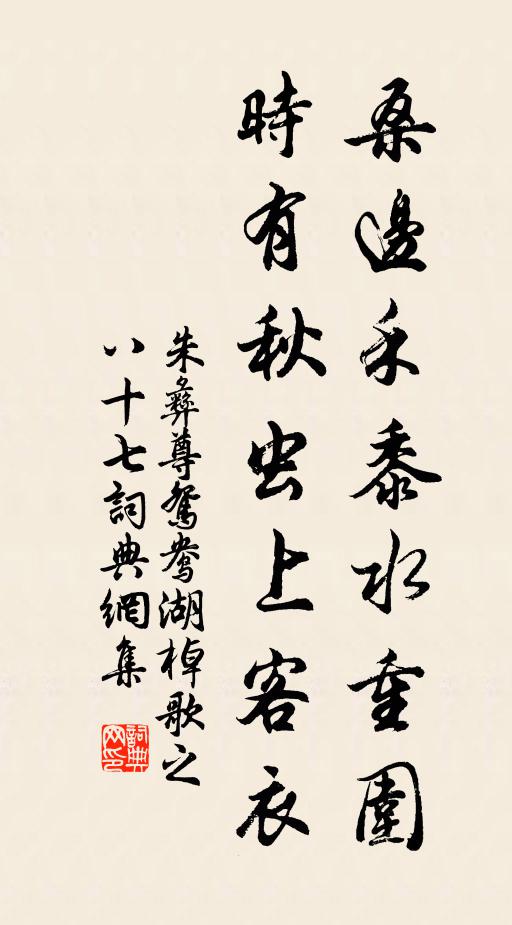 桑邊禾黍水重圍
時有秋虫上客衣
朱彝尊鴛鴦湖棹歌之
八十七詞典網集
詞典网印